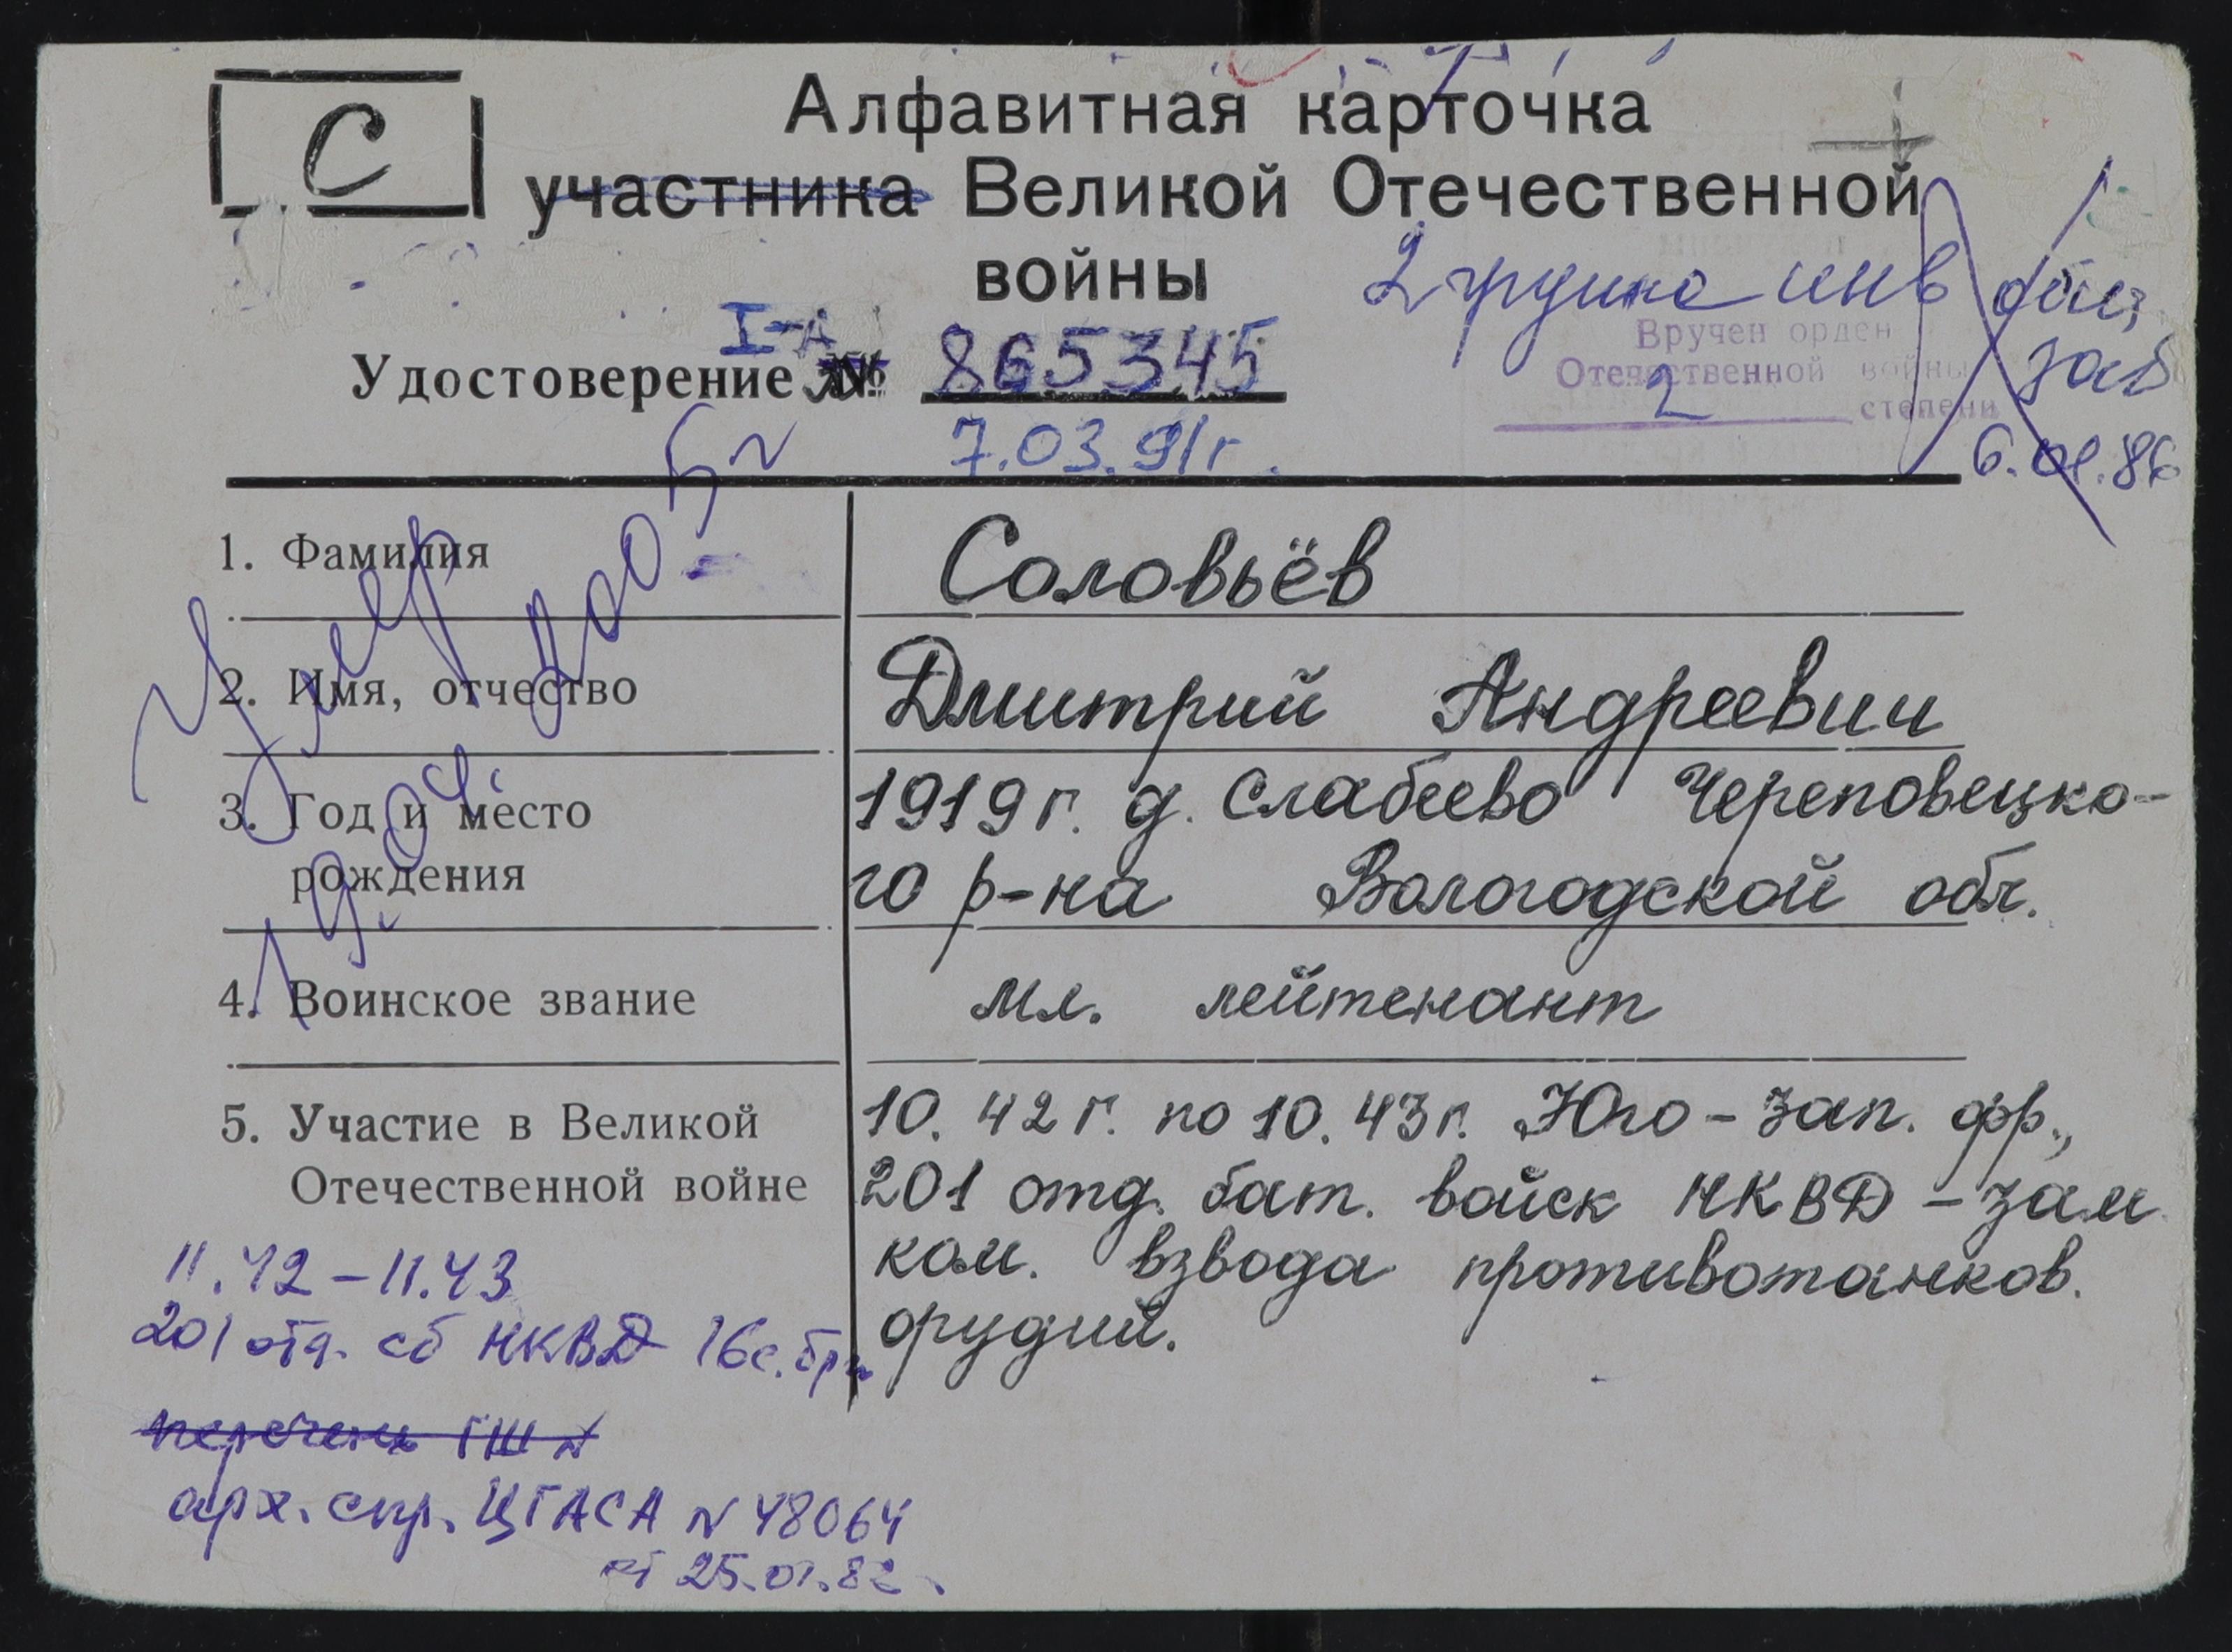 С
Алфавитная карточка
участника Великой Отечественной
войны
2 группа инв общ
заб
6.01.86
Вручен орден
Отечественной войны
2 степени
I-А
Удостоверение № 865345
7.03.91г.
Умер
19.04.
1. Фамилия Соловьёв
2. Имя, отчество Дмитрий Андреевич
3. Год и место рождения 1919 г. д. Слабеево Череповецко-
го р-на Вологодской обл.
4. Воинское звание мл. лейтенант
5. Участие в Великой Отечественной войне
10.42 г. по 10.43 г. Юго-зап. фр.,
201 отд. бат. войск НКВД - зам.
ком. взвода противотанков.
орудий.
11.42-11.43
201 отд. сб НКВД 16с.бр.
перечень ГШ N
арх. спр. ЦГАСА N 48064
от 25.01.82.